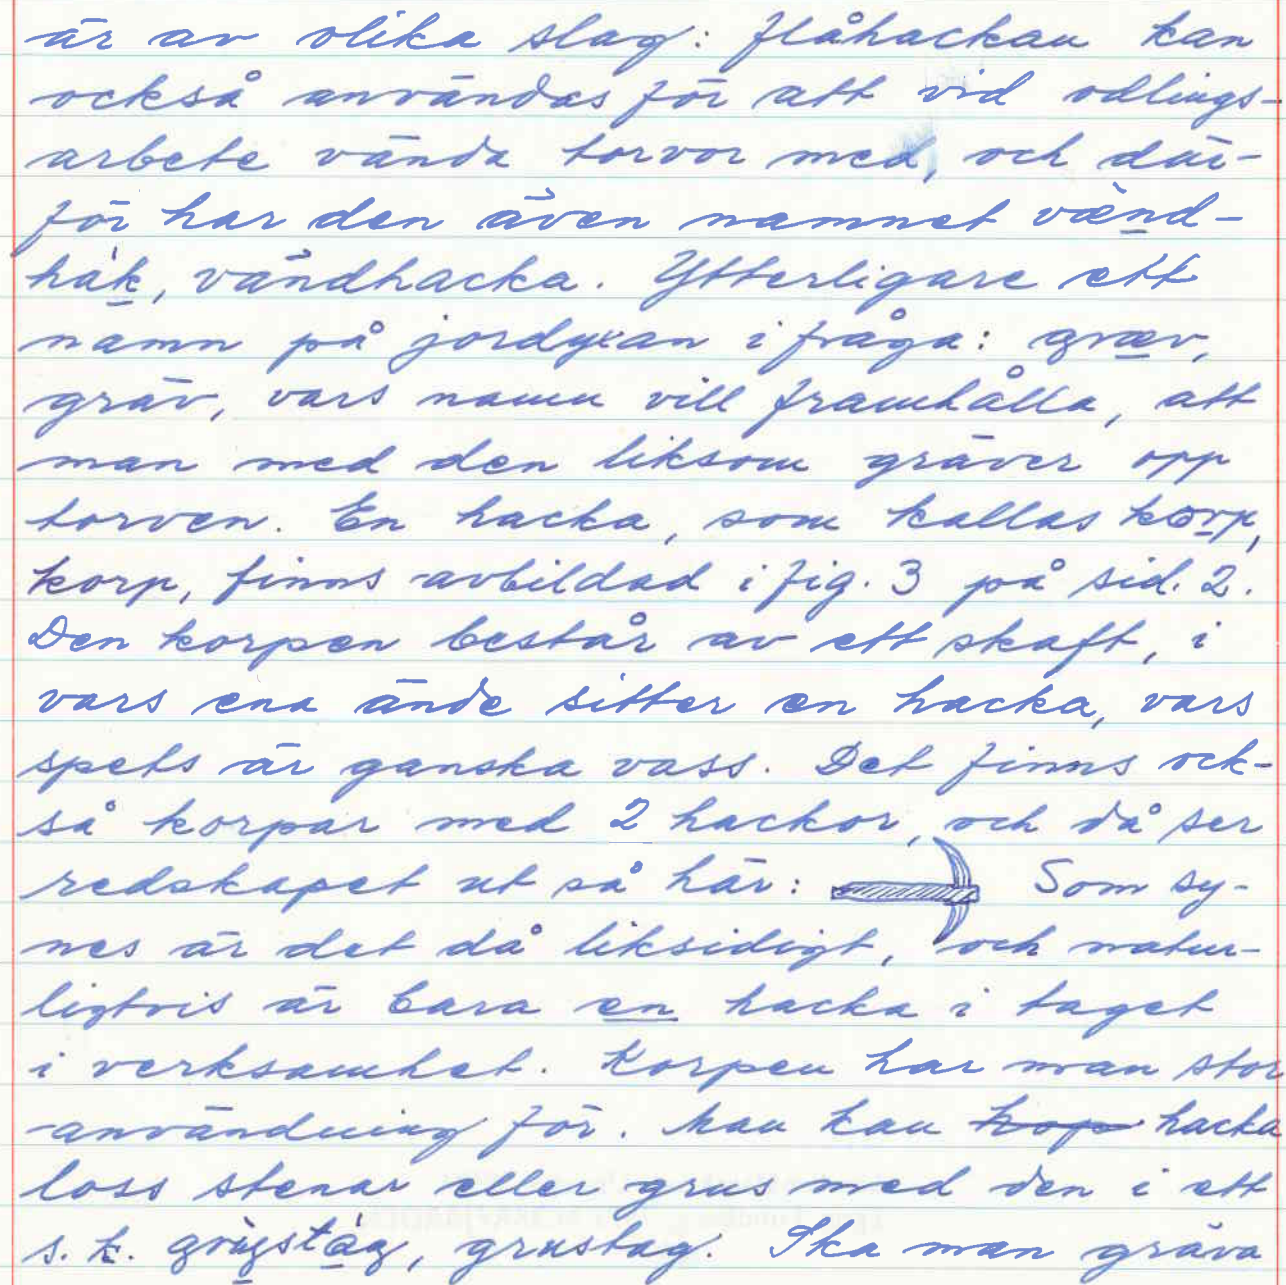 är av olika slag: flåhackan kan
också användas för att vid odlings-
arbete vända torvor med, och där-
för har den även namnet vænd-
håk, vändhacka. Ytterligare ett
namn på jordyxan i fråga: græv,
gräv, vars namn vill framhålla, att
man med den liksom gräver opp
torven. En hacka, som kallas korp,
korp, finns avbildad i fig. 3 på sid. 2.
Den korpen består av ett skaft, i
vars ena ände sitter en hacka, vars
spets är ganska vass. Det finns ock-
så korpar med 2 hackor, och då ser
redskapet ut så här: Som sy-
nes är det då liksidigt, och natur-
ligtvis är bara en hacka i taget
i verksamhet. Korpen har man stor
användning för. Man kan hacka
loss stenar eller grus med den i ett
s.k. grustag. Ska man gräva